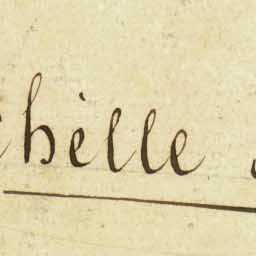 chèlle